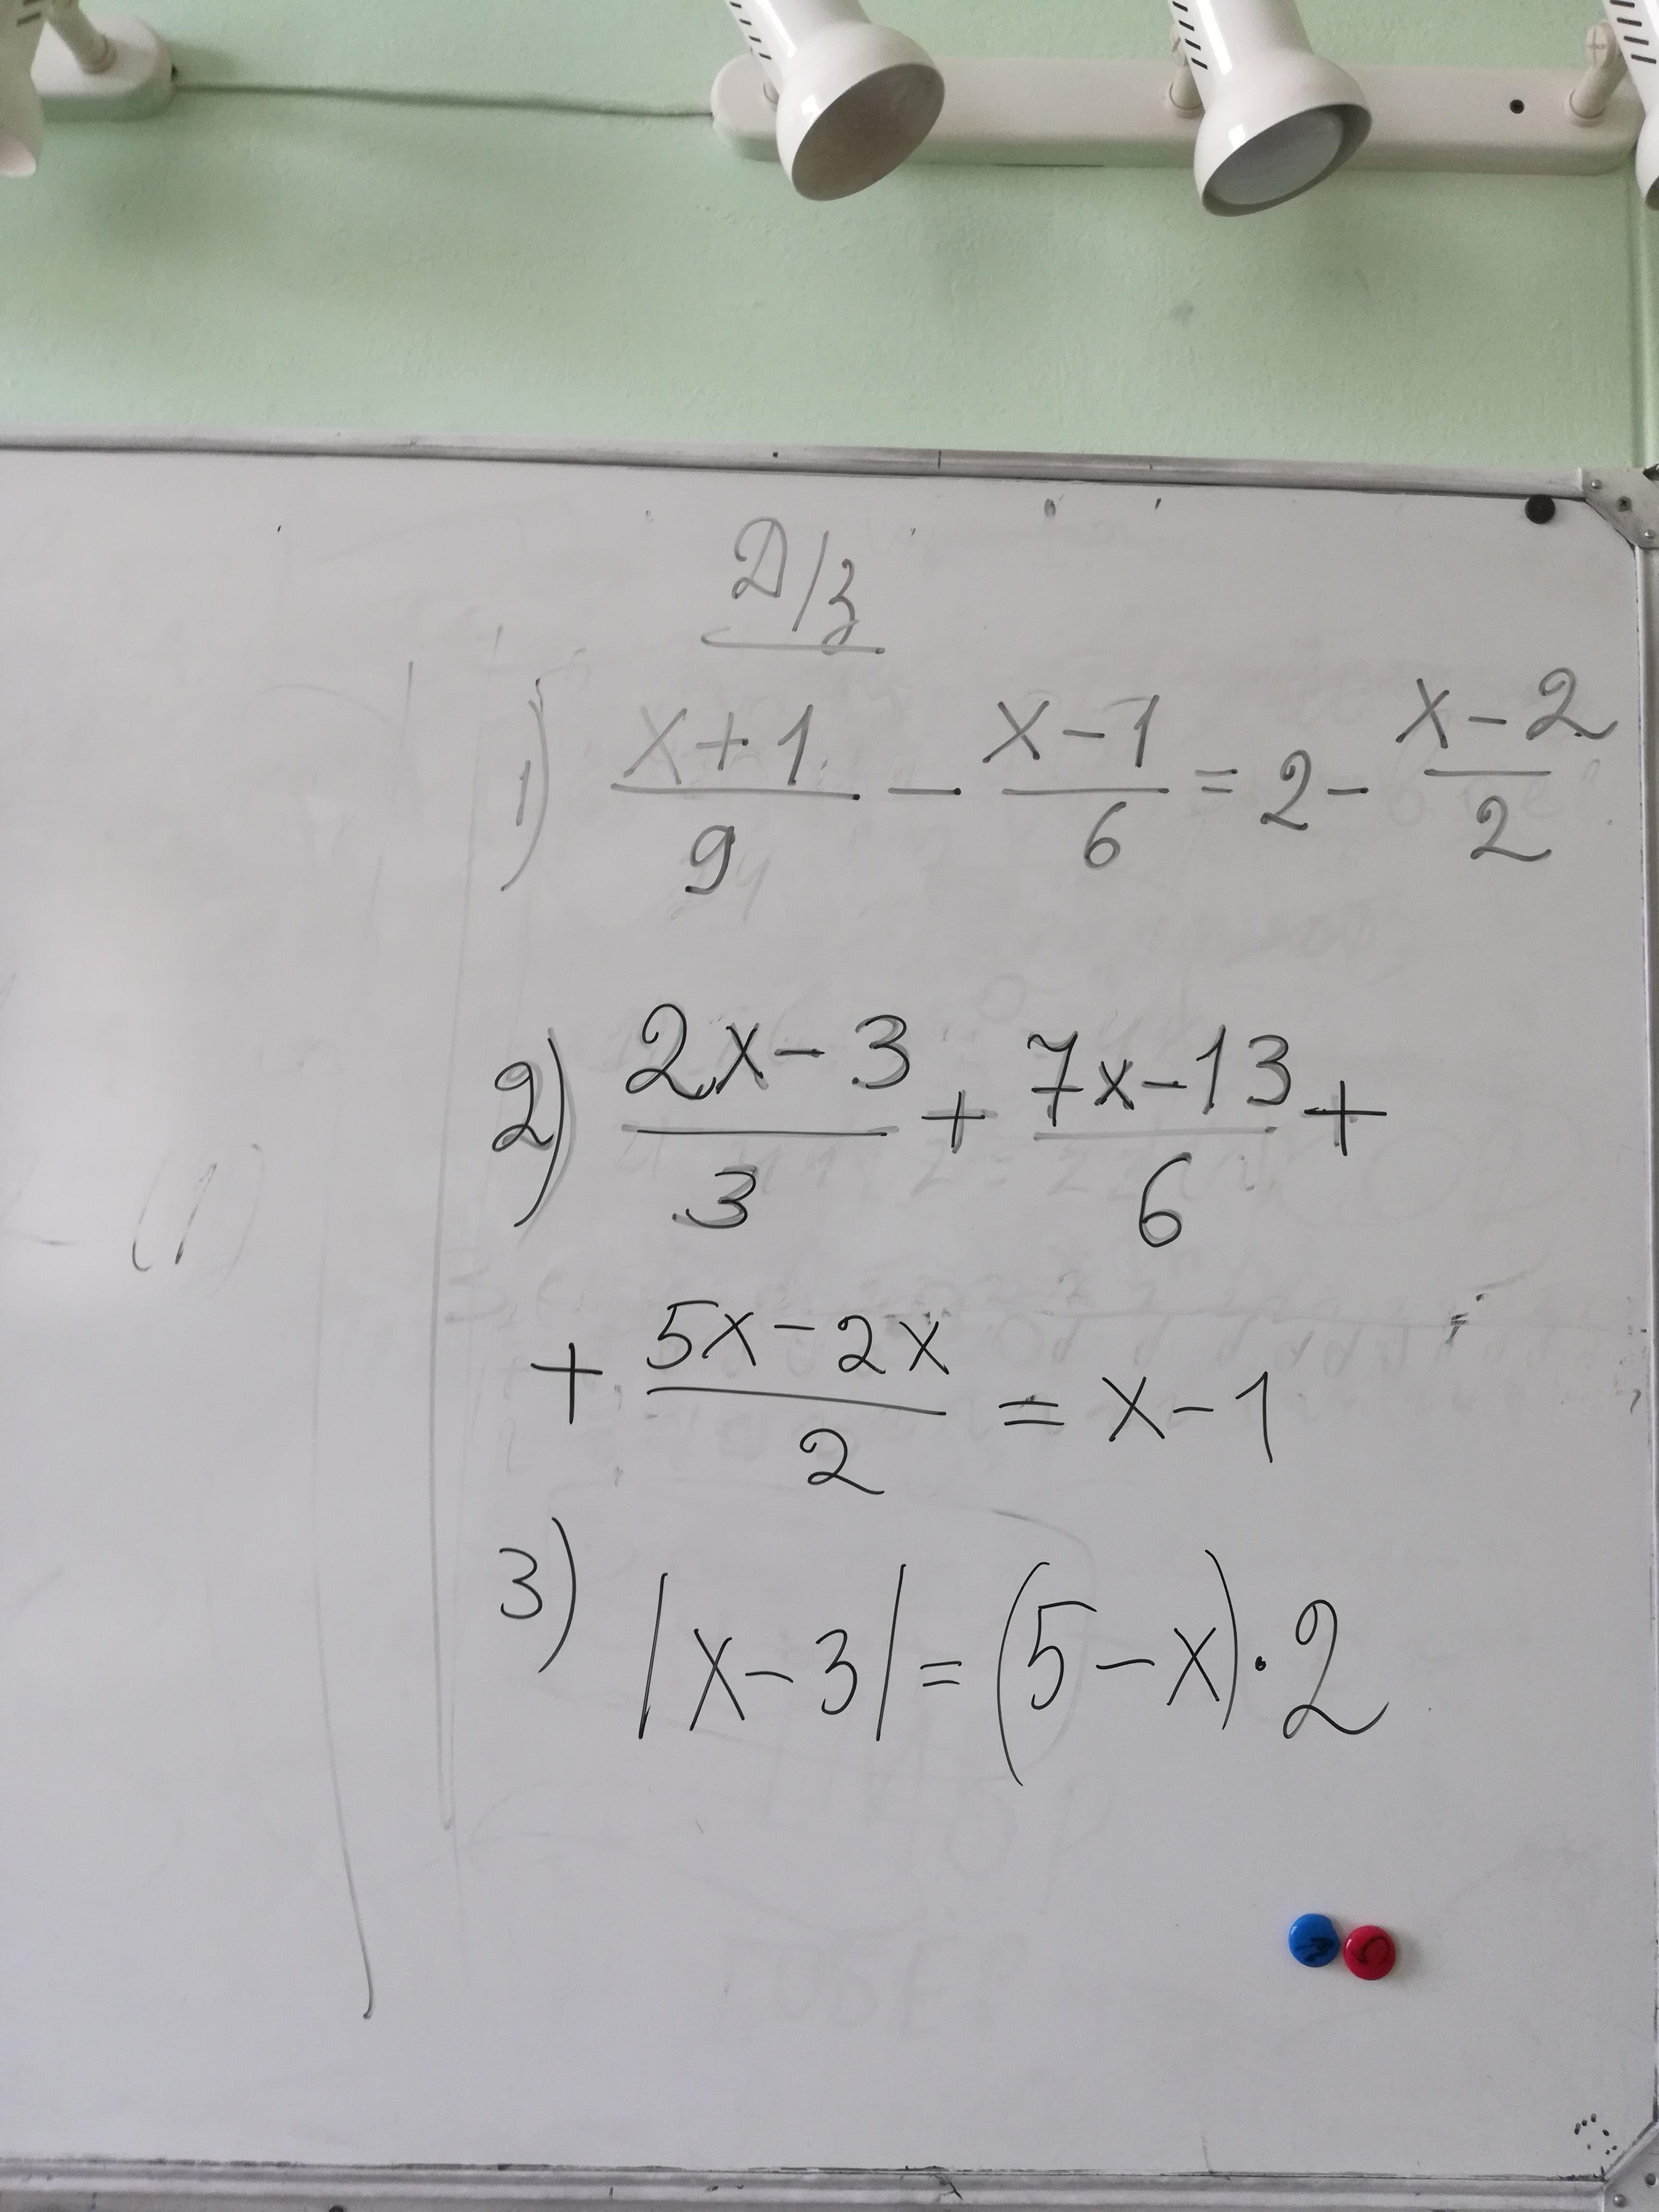 Д/з
1) (x+1)/9 - (x-1)/6 = 2 - (x-2)/2
2) (2x-3)/3 + (7x-13)/6 +
+ (5x-2x)/2 = x-1
3) |x-3| = (5-x)·2